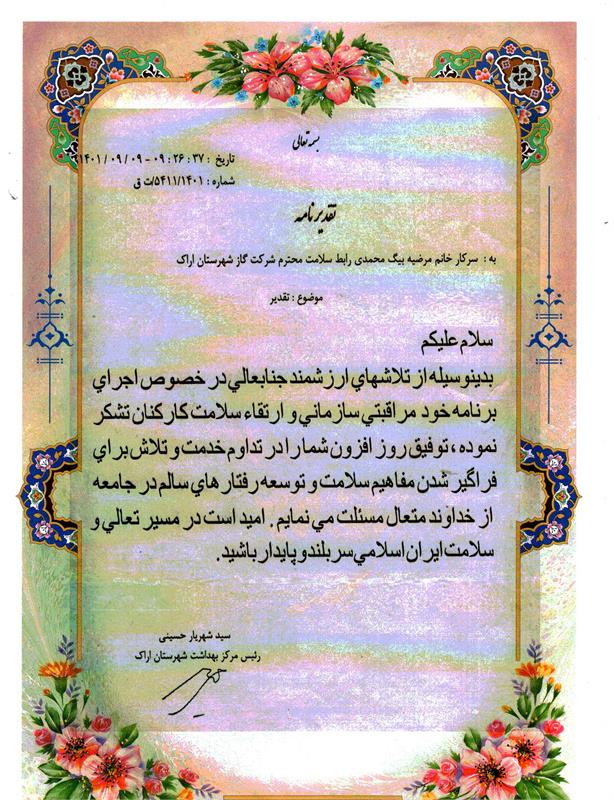 بسمه تعالی
تاریخ : ۳۷ : ۲۶ : ۰۹ - ۰۹ / ۰۹ / ۱۴۰۱
شماره : ۵۴۱۱/۱۴۰۱/ت ق
تقدیرنامه
به : سرکار خانم مرضیه بیگ محمدی رابط سلامت محترم شرکت گاز شهرستان اراک
موضوع : تقدیر
سلام عليکم
بدينوسيله از تلاشهاي ارزشمند جنابعالي در خصوص اجراي
برنامه خود مراقبتي سازماني و ارتقاء سلامت کارکنان تشکر
نموده ، توفيق روز افزون شما را در تداوم خدمت و تلاش براي
فراگير شدن مفاهيم سلامت و توسعه رفتار هاي سالم در جامعه
از خداوند متعال مسئلت مي نمايم . اميد است در مسير تعالي و
سلامت ايران اسلامي سربلند و پايدار باشيد .
سید شهریار حسینی
رئیس مرکز بهداشت شهرستان اراک